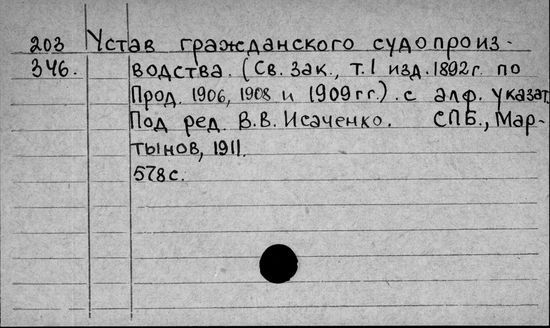 203 Устав гражданского судопроиз-
346. водства. (Св. Зак., т. 1 изд. 1892 г. по
Прод. 1906, 1908 и 1909 гг.). с алф. указат.
Под ред. В.В. Исаченко. СПБ., Мар-
тынов, 1911.
578 с.